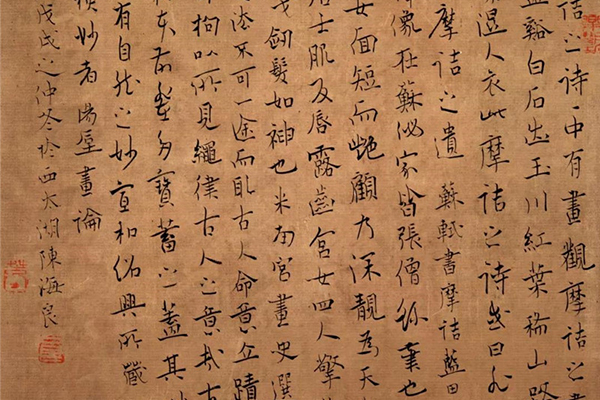 詰之詩中有畫觀摩詰之
藍谿白石出玉川紅葉稀山路
濕人衣此摩詰之詩或曰非
摩詰之遺 蘇軾書摩詰藍田
像在蘇泌家皆張僧繇筆也
女面短而艷顧乃深靚為天
士肌及唇露齒宮女四人擎
戈劍髮如神也米南宮畫史選
法不可一途而取古人命意立蹟
拘以所見繩律古人之意哉古
灰前輩多寶蓄之蓋其妙
有自然之妙宣和紹興所藏
妙者 湯垕畫論
戊戌之仲 於四大湖陳海良